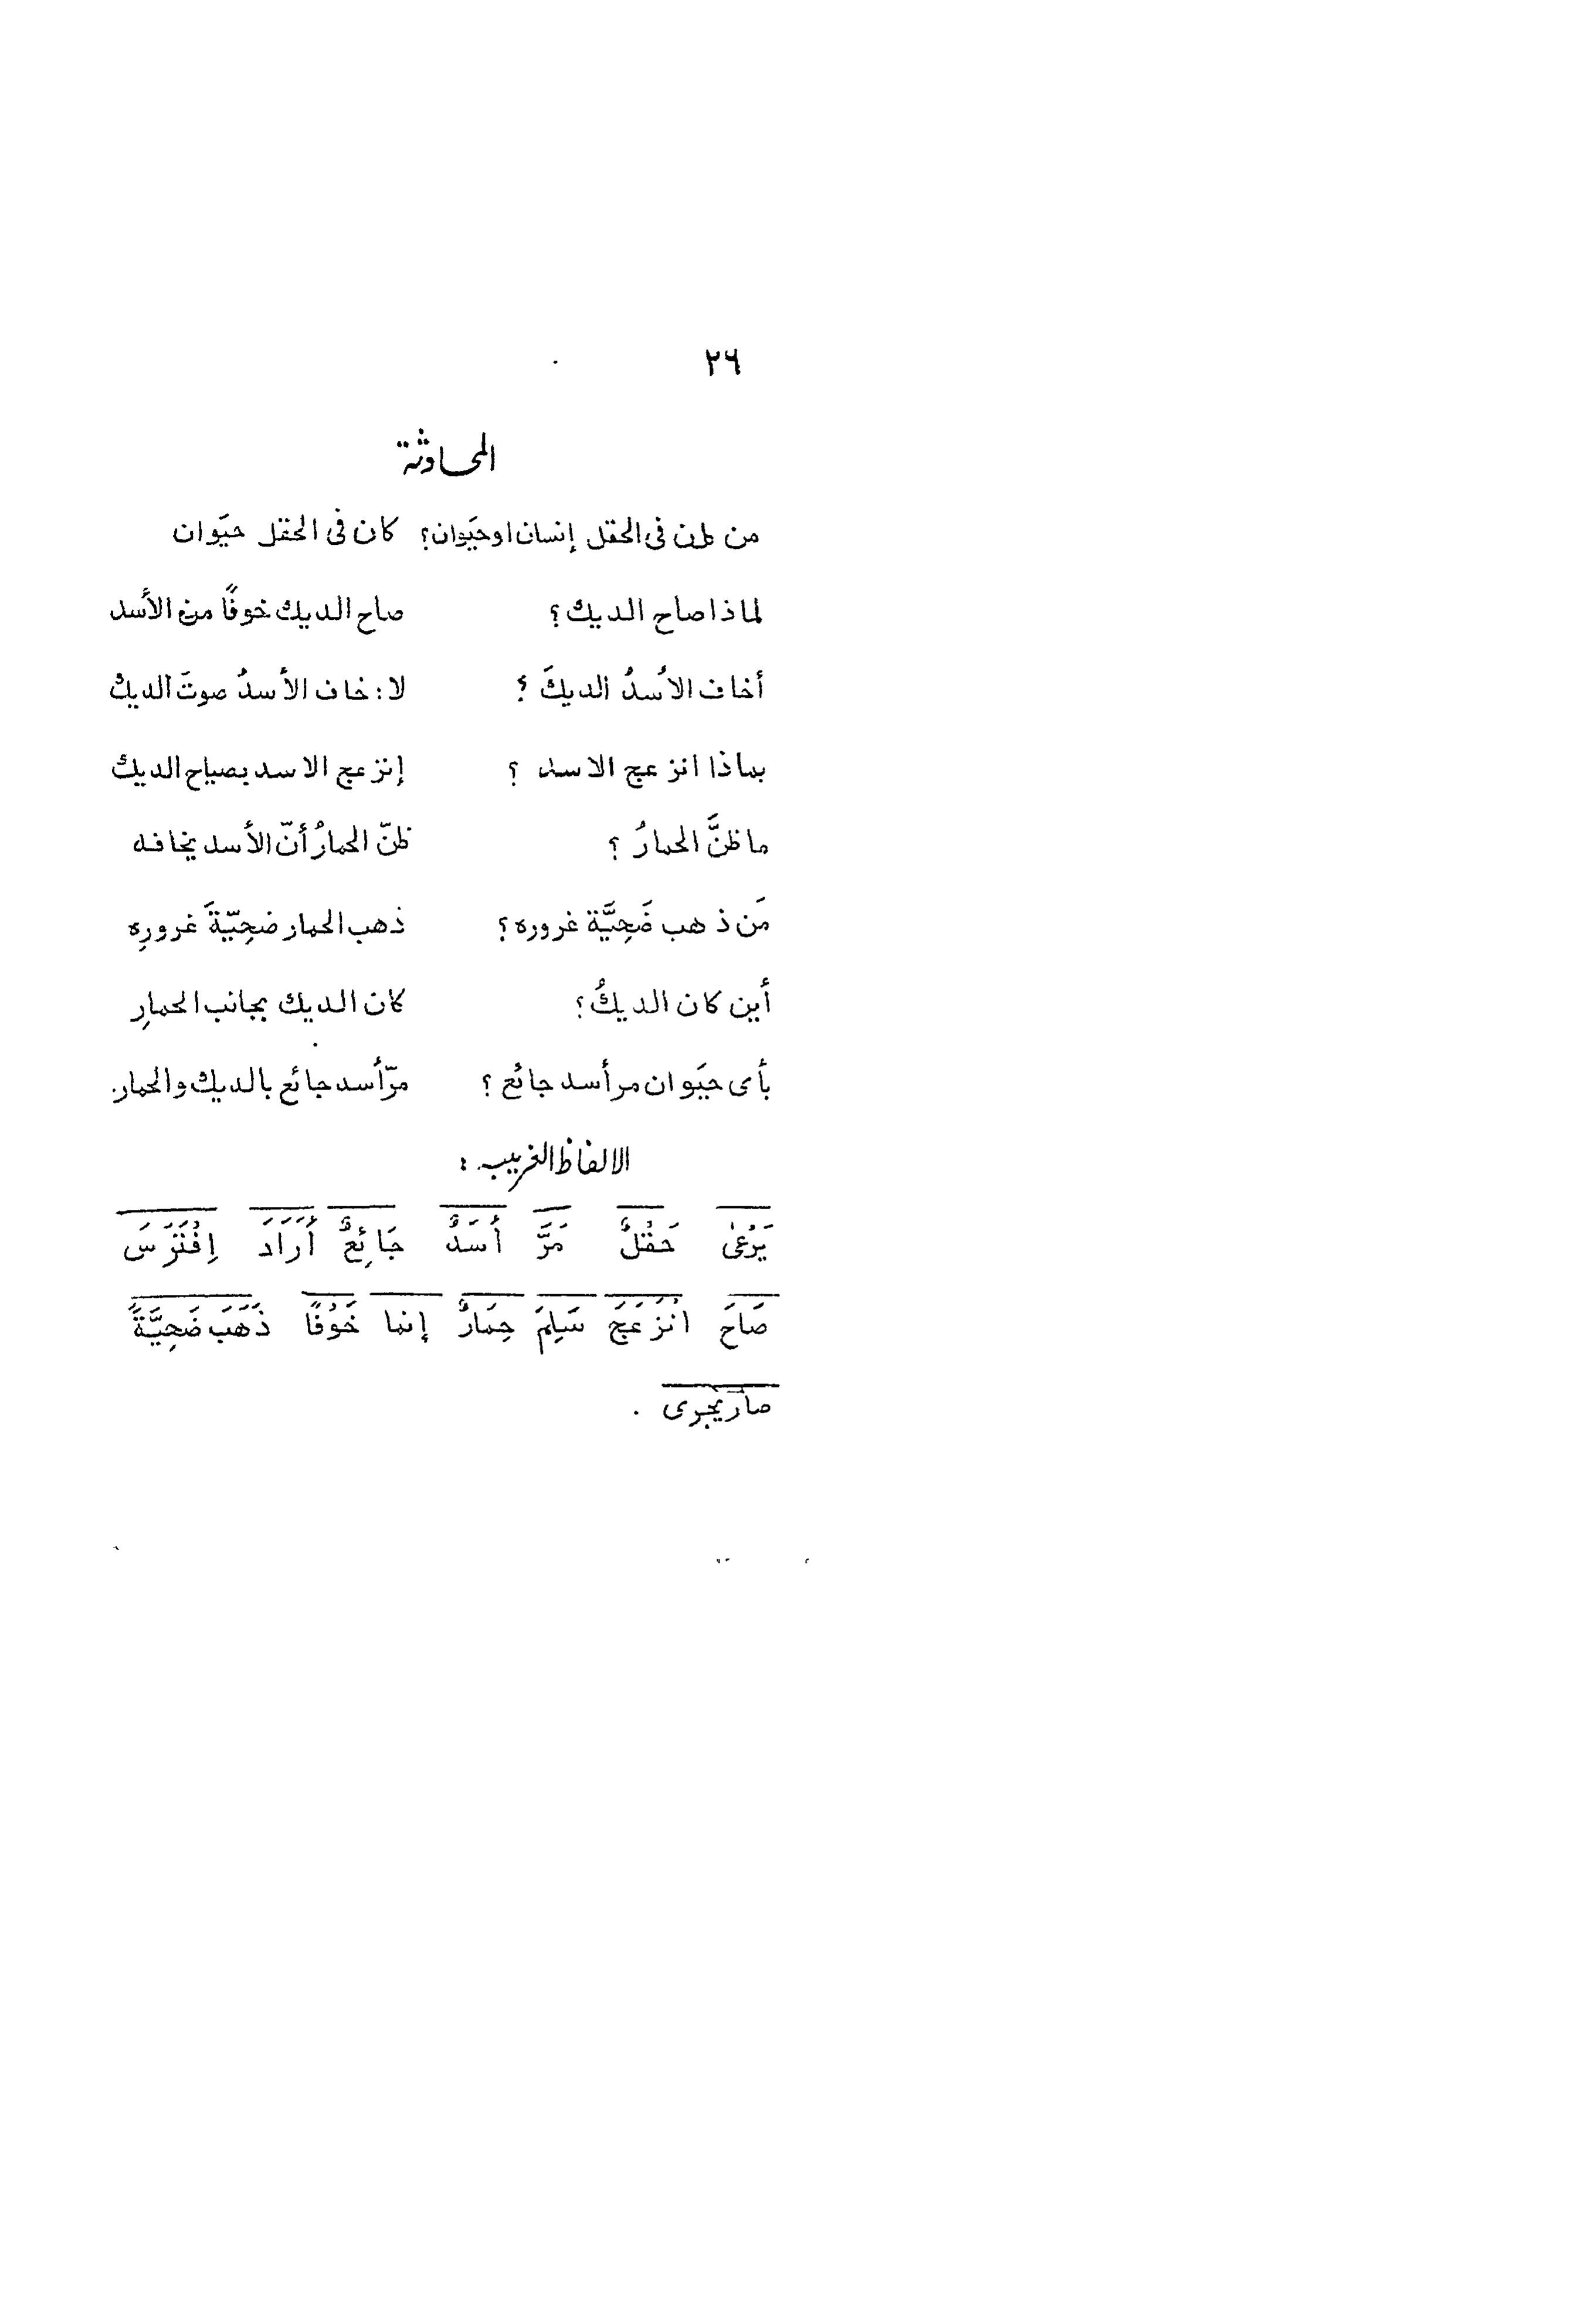 ٢٦
المحادثة
من كان فى الحقل إنسان او حيَوان؟ كان فى الحقل حيَوان
لماذا صاح الديك؟ صاح الديك خوفًا من الأسد
أخاف الاسدُ الديكَ؟ لا: خاف الأسدُ صوتَ الديك
بماذا انزعج الاسد ؟ إنزعج الاسد بصياح الديك
ما ظنَّ الحمارُ ؟ ظنّ الحمارُ أنّ الأسد يخافه
مَن ذهب ضَحِيَّة غروره؟ ذهب الحمار ضحِيّةَ غرورِه
أين كان الديكُ؟ كان الديك بجانب الحمارِ
بأى حيَوان مر أسد جائع ؟ مرّ أسد جائع بالديك والحمار.
الالفاظ الغريب :
يَرْعىٰ حَقْلٌ مَرَّ أَسَدٌ جَائِعٌ أَرَادَ اِفْتَرَسَ
صَاحَ انْزَعَجَ سَلِمَ حِمَارٌ إنما خَوْفًا ذَهَبَ ضَحِيَّةً
صار يجرى .